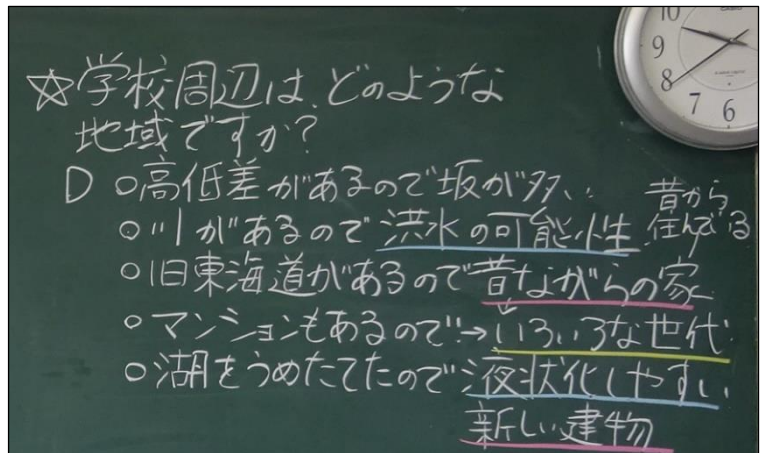 ☆学校周辺は、どのような
地域ですか？
D ○高低差があるので坂が多い
○川があるので洪水の可能性
昔から
住んでいる
○旧東海道があるので昔ながらの家
○マンションもあるので→いろいろな世代
○湖をうめたてたので液状化しやすい
新しい建物
10
9
8
7
6